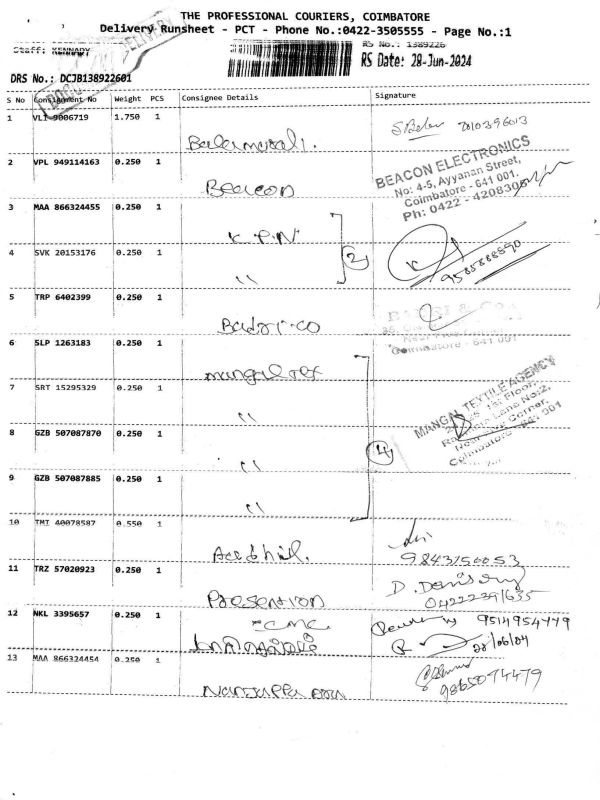 THE PROFESSIONAL COURIERS, COIMBATORE
Delivery Runsheet - PCT - Phone No.:0422-3505555 - Page No.:1
Staff: KENNADY
RS No.: 1389226
RS Date: 28-Jun-2024
DELIVERY
DRS No.: DCJB138922601
S No Consignment No Weight PCS Consignee Details Signature
1 VLI 9006719 1.750 1
2 VPL 949114163 0.250 1 Beacon
BEACON ELECTRONICS
No: 4-5, Ayyanan Street,
Coimbatore - 641 001.
Ph: 0422 - 4208306
3 MAA 866324455 0.250 1 K.P.N
4 SVK 20153176 0.250 1 " 2
9585888890
5 TRP 6402399 0.250 1 Badri-co
Coimbatore - 641 001
6 SLP 1263183 0.250 1 mangal tex
7 SRT 15295329 0.250 1 "
MANGAL TEXTILE AGENCY
1st Floor,
Lane No:2,
Corner,
Coimbatore - 641 001
8 GZB 507087870 0.250 1 " 4
9 GZB 507087885 0.250 1 "
10 TMT 40078587 0.550 1
9843150053
11 TRZ 57020923 0.250 1
D.
12 NKL 3395657 0.250 1 CMC
9514954779
28/06/24
13 MAA 866324454 0.250 1
9865074479